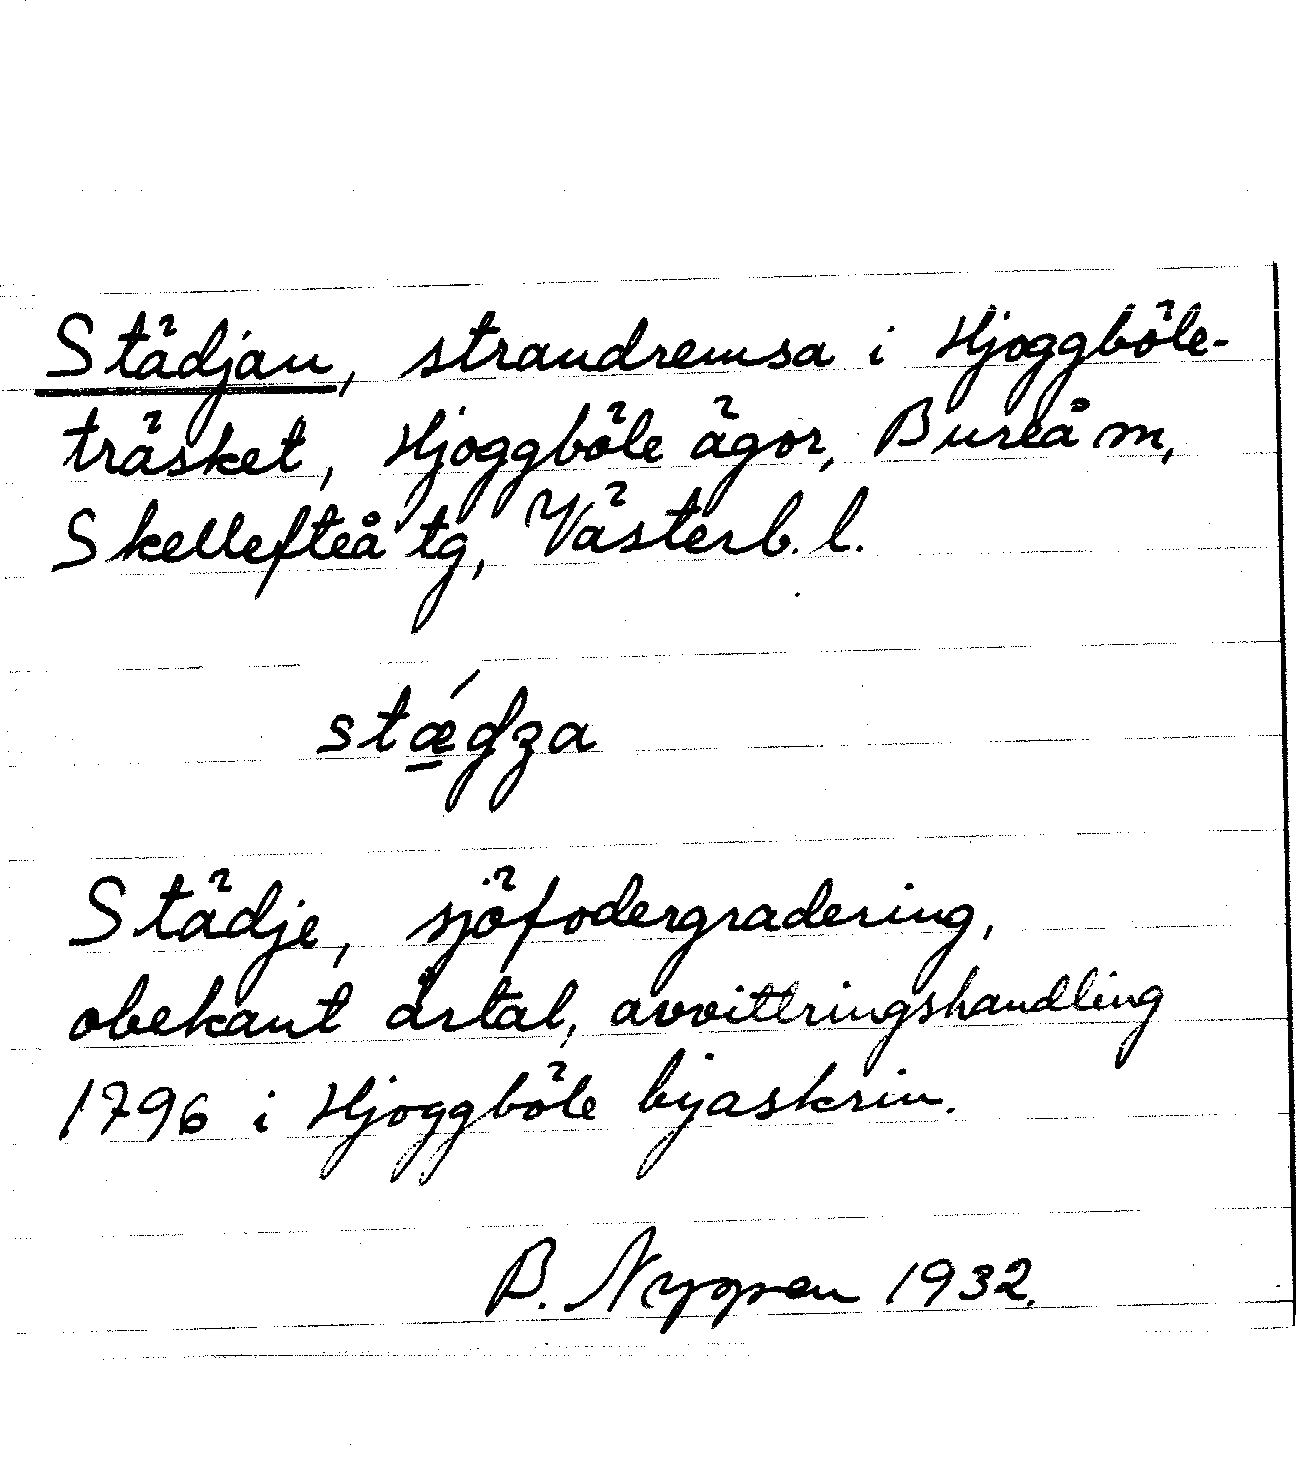 Städjan, strandremsa i Hjoggböle-
träsket, Hjoggböle ägor, Bureå m,
Skellefteå tg, Västerb. l.
Städje, sjöfodergradering,
obekant årtal, avvittringshandling
1796 i Hjoggböle byaskrin.
B. 1932.